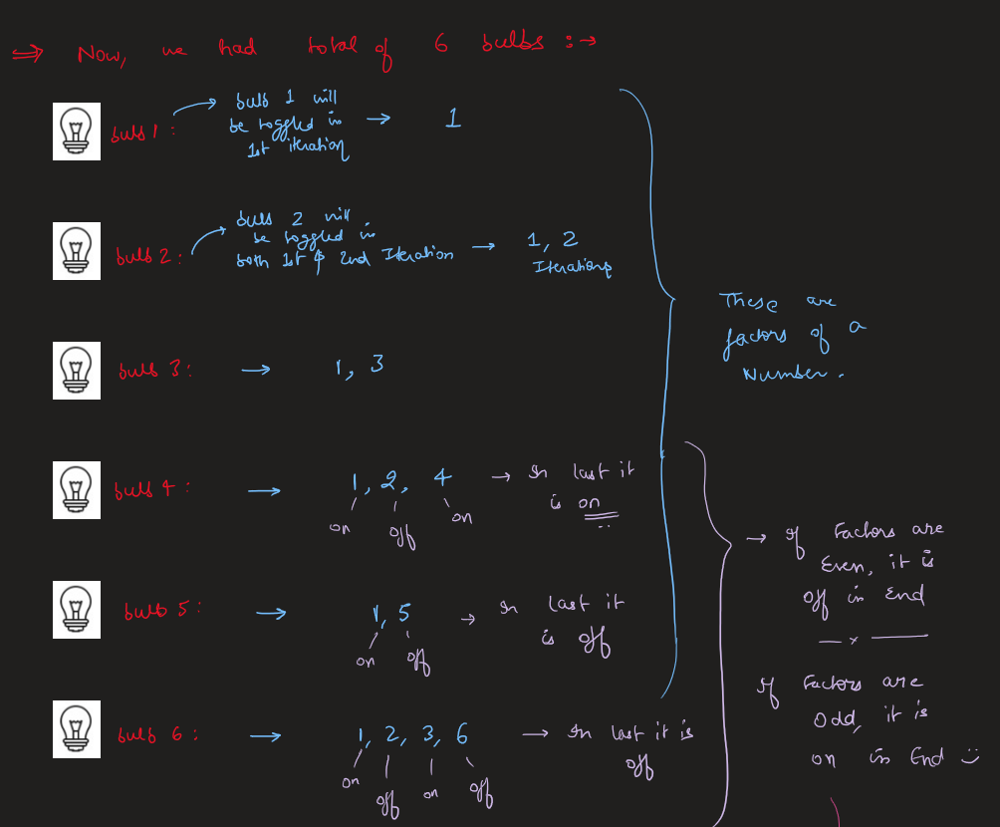 ⇒ Now, we had total of 6 bulbs :→
bulb 1 :
bulb 1 will
be toggled in
1st iteration
→ 1
bulb 2 :
bulb 2 will
be toggled in
both 1st & 2nd Iteration
→ 1, 2
Iterations
bulb 3 : → 1, 3
These are
factors of a
Number.
bulb 4 : → 1, 2, 4
on off on
→ In last it
is on
bulb 5 : → 1, 5
on off
→ In last it
is off
bulb 6 : → 1, 2, 3, 6
on off on off
→ In last it is
off
→ If Factors are
Even, it is
off in End
— x —
If Factors are
Odd, it is
on in End